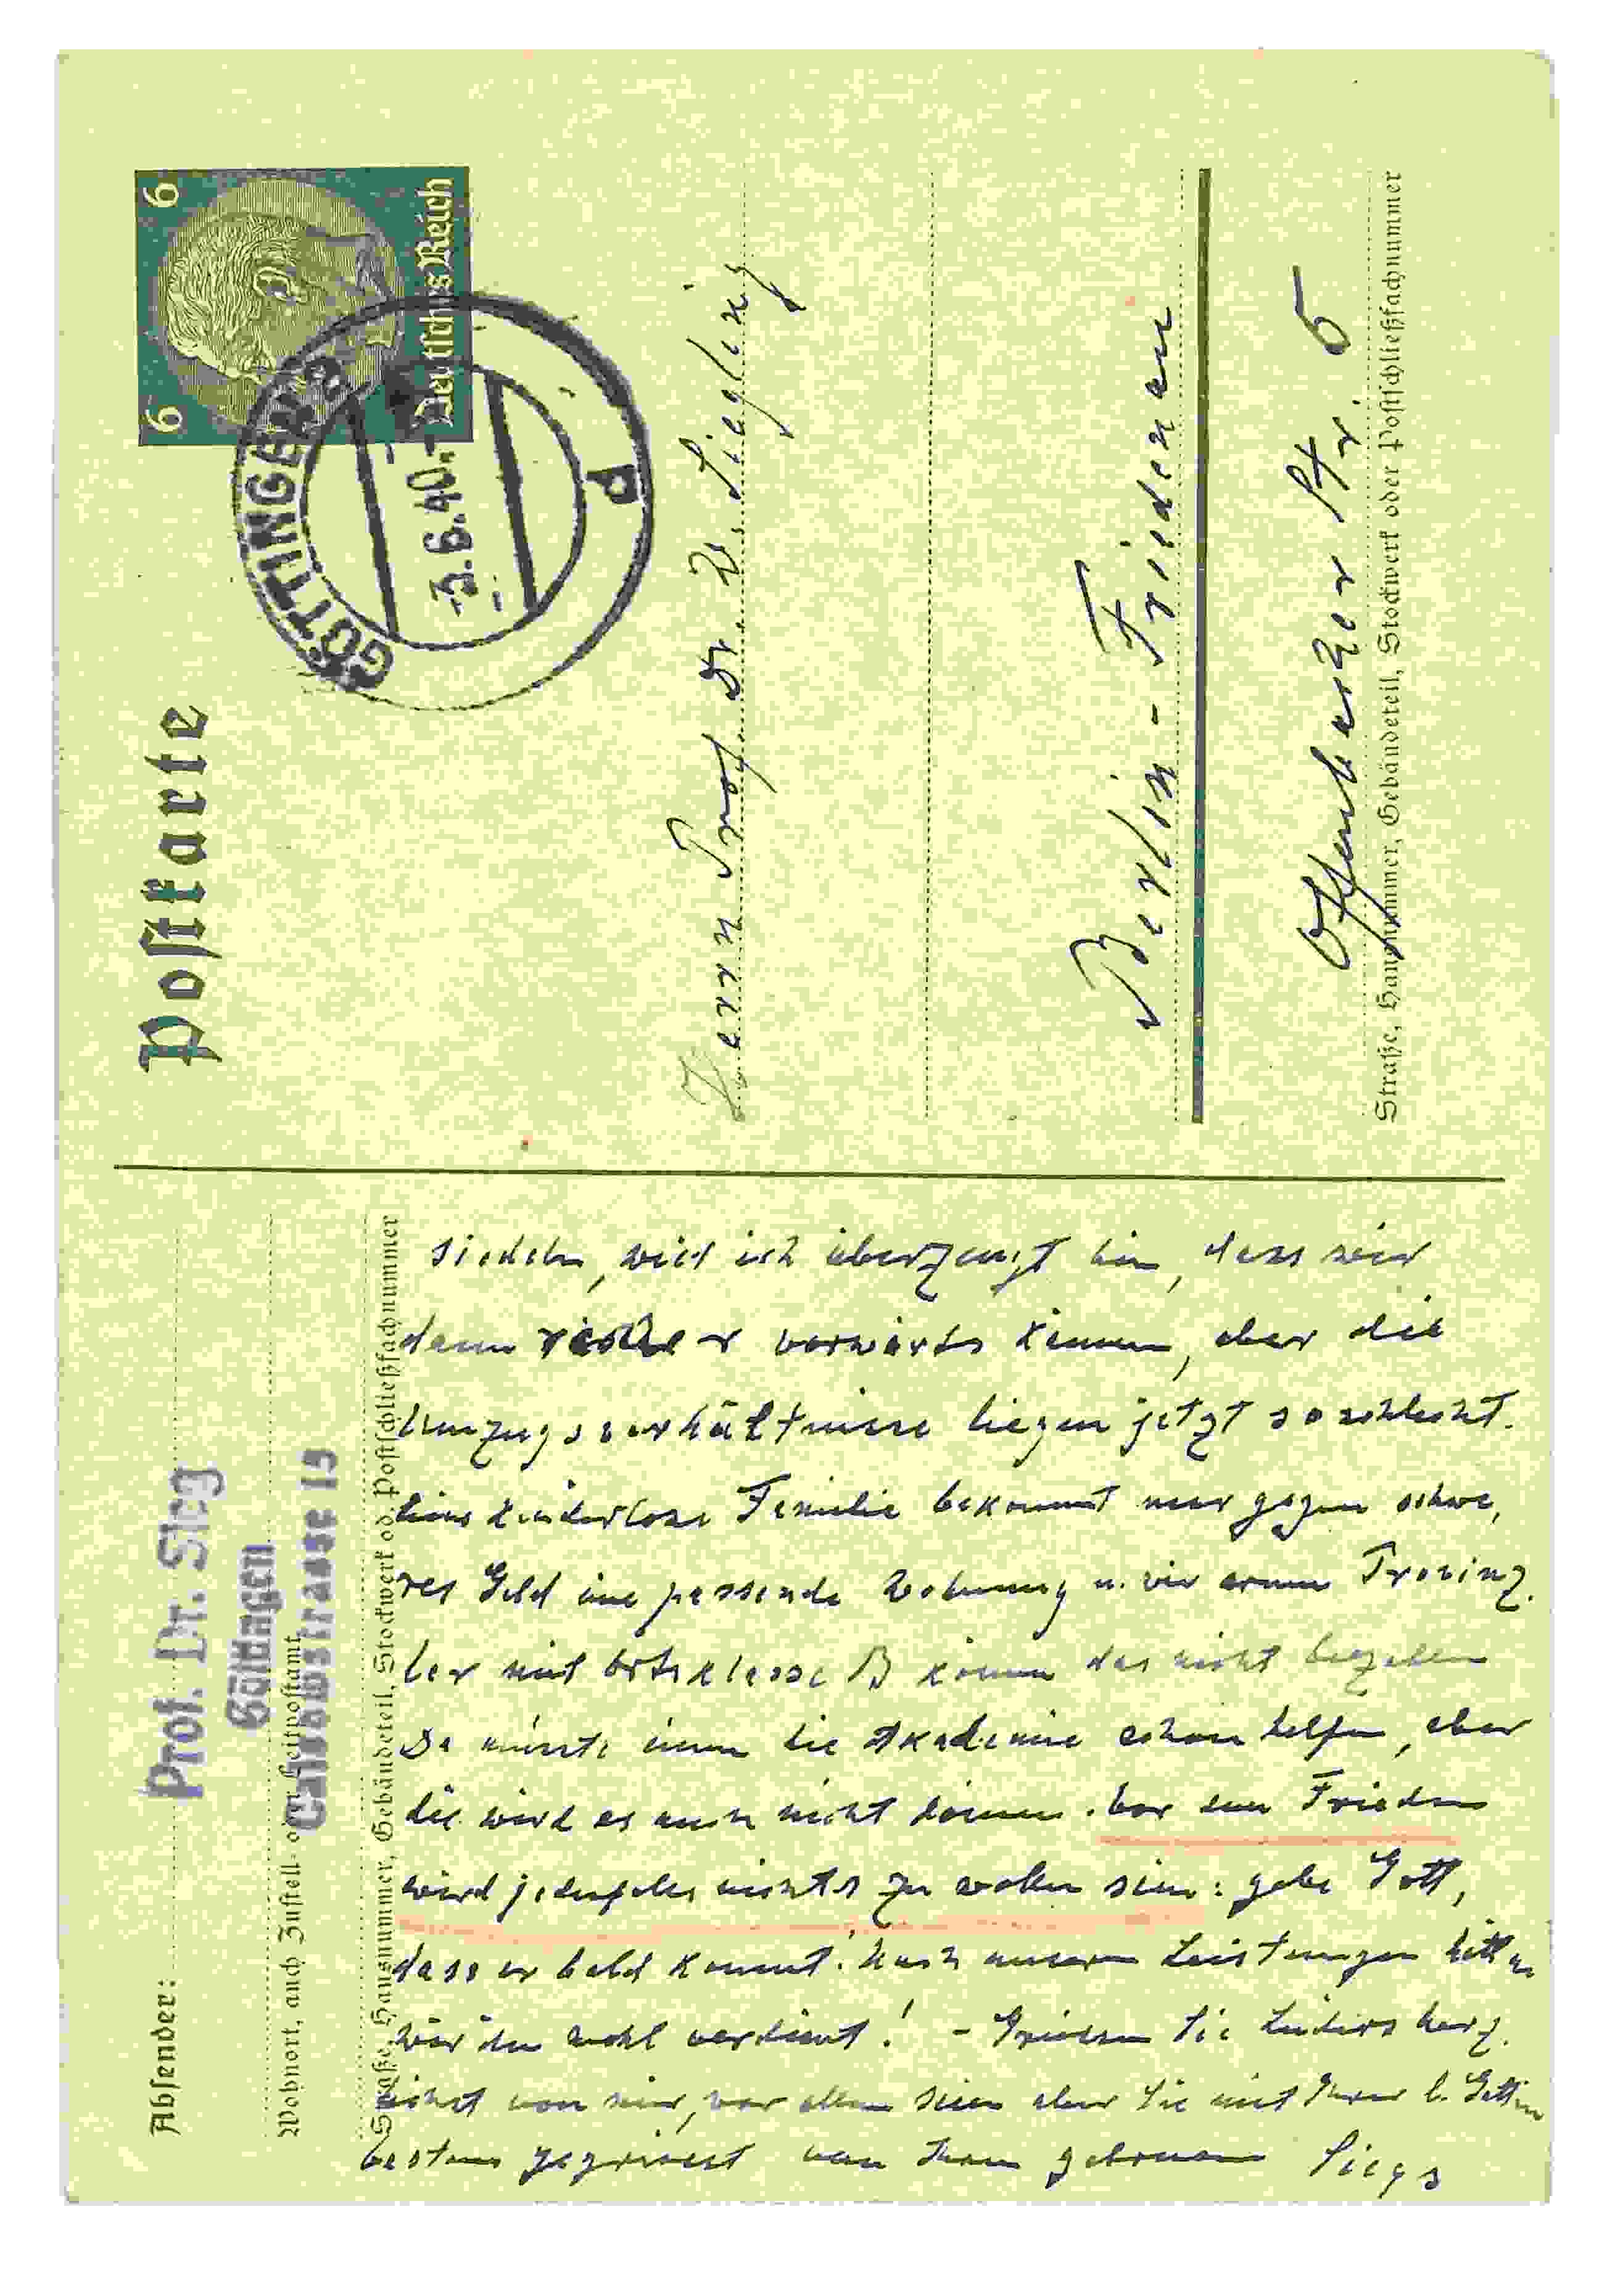 Postkarte
6 6
Deutsches Reich
GÖTTINGEN 2
-3.6.40.-
d
Herrn Prof. Dr. W. Siegling
Berlin-Friedenau
Offenbacher Str. 5
Straße, Hausnummer, Gebäudeteil, Stockwerk oder Postschließfachnummer
Absender:
Prof. Dr. Sieg
Göttingen
Wohnort, auch Zustell- oder Leitpostamt
Calsowstrasse 15
Straße, Hausnummer, Gebäudeteil, Stockwerk od. Postschließfachnummer
siedeln, weil ich überzeugt bin, dass wir
dann rascher vorwärts kämen, aber die
Umzugsverhältnisse liegen jetzt so schlecht.
Eine kinderlose Familie bekommt nur gegen schwe,
res Geld eine passende Wohnung u. wir armen Provinz,
ler mit Ortsklasse B können das nicht bezahlen
Da müsste einem die Akademie schon helfen, aber
die wird es auch nicht können. Vor dem Frieden
wird jedenfalls nichts zu wollen sein: gebe Gott,
dass er bald kommt! Nach unseren Leistungen hätten
wir ihn wohl verdient! - Grüssen Sie Lüders herz,
lichst von mir, vor allem seien aber Sie mit Ihrer l. Gattin
bestens gegrüsst von Ihren getreuen Siegs